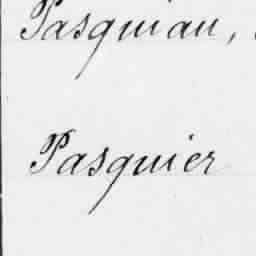 Pasquian,
Pasquier